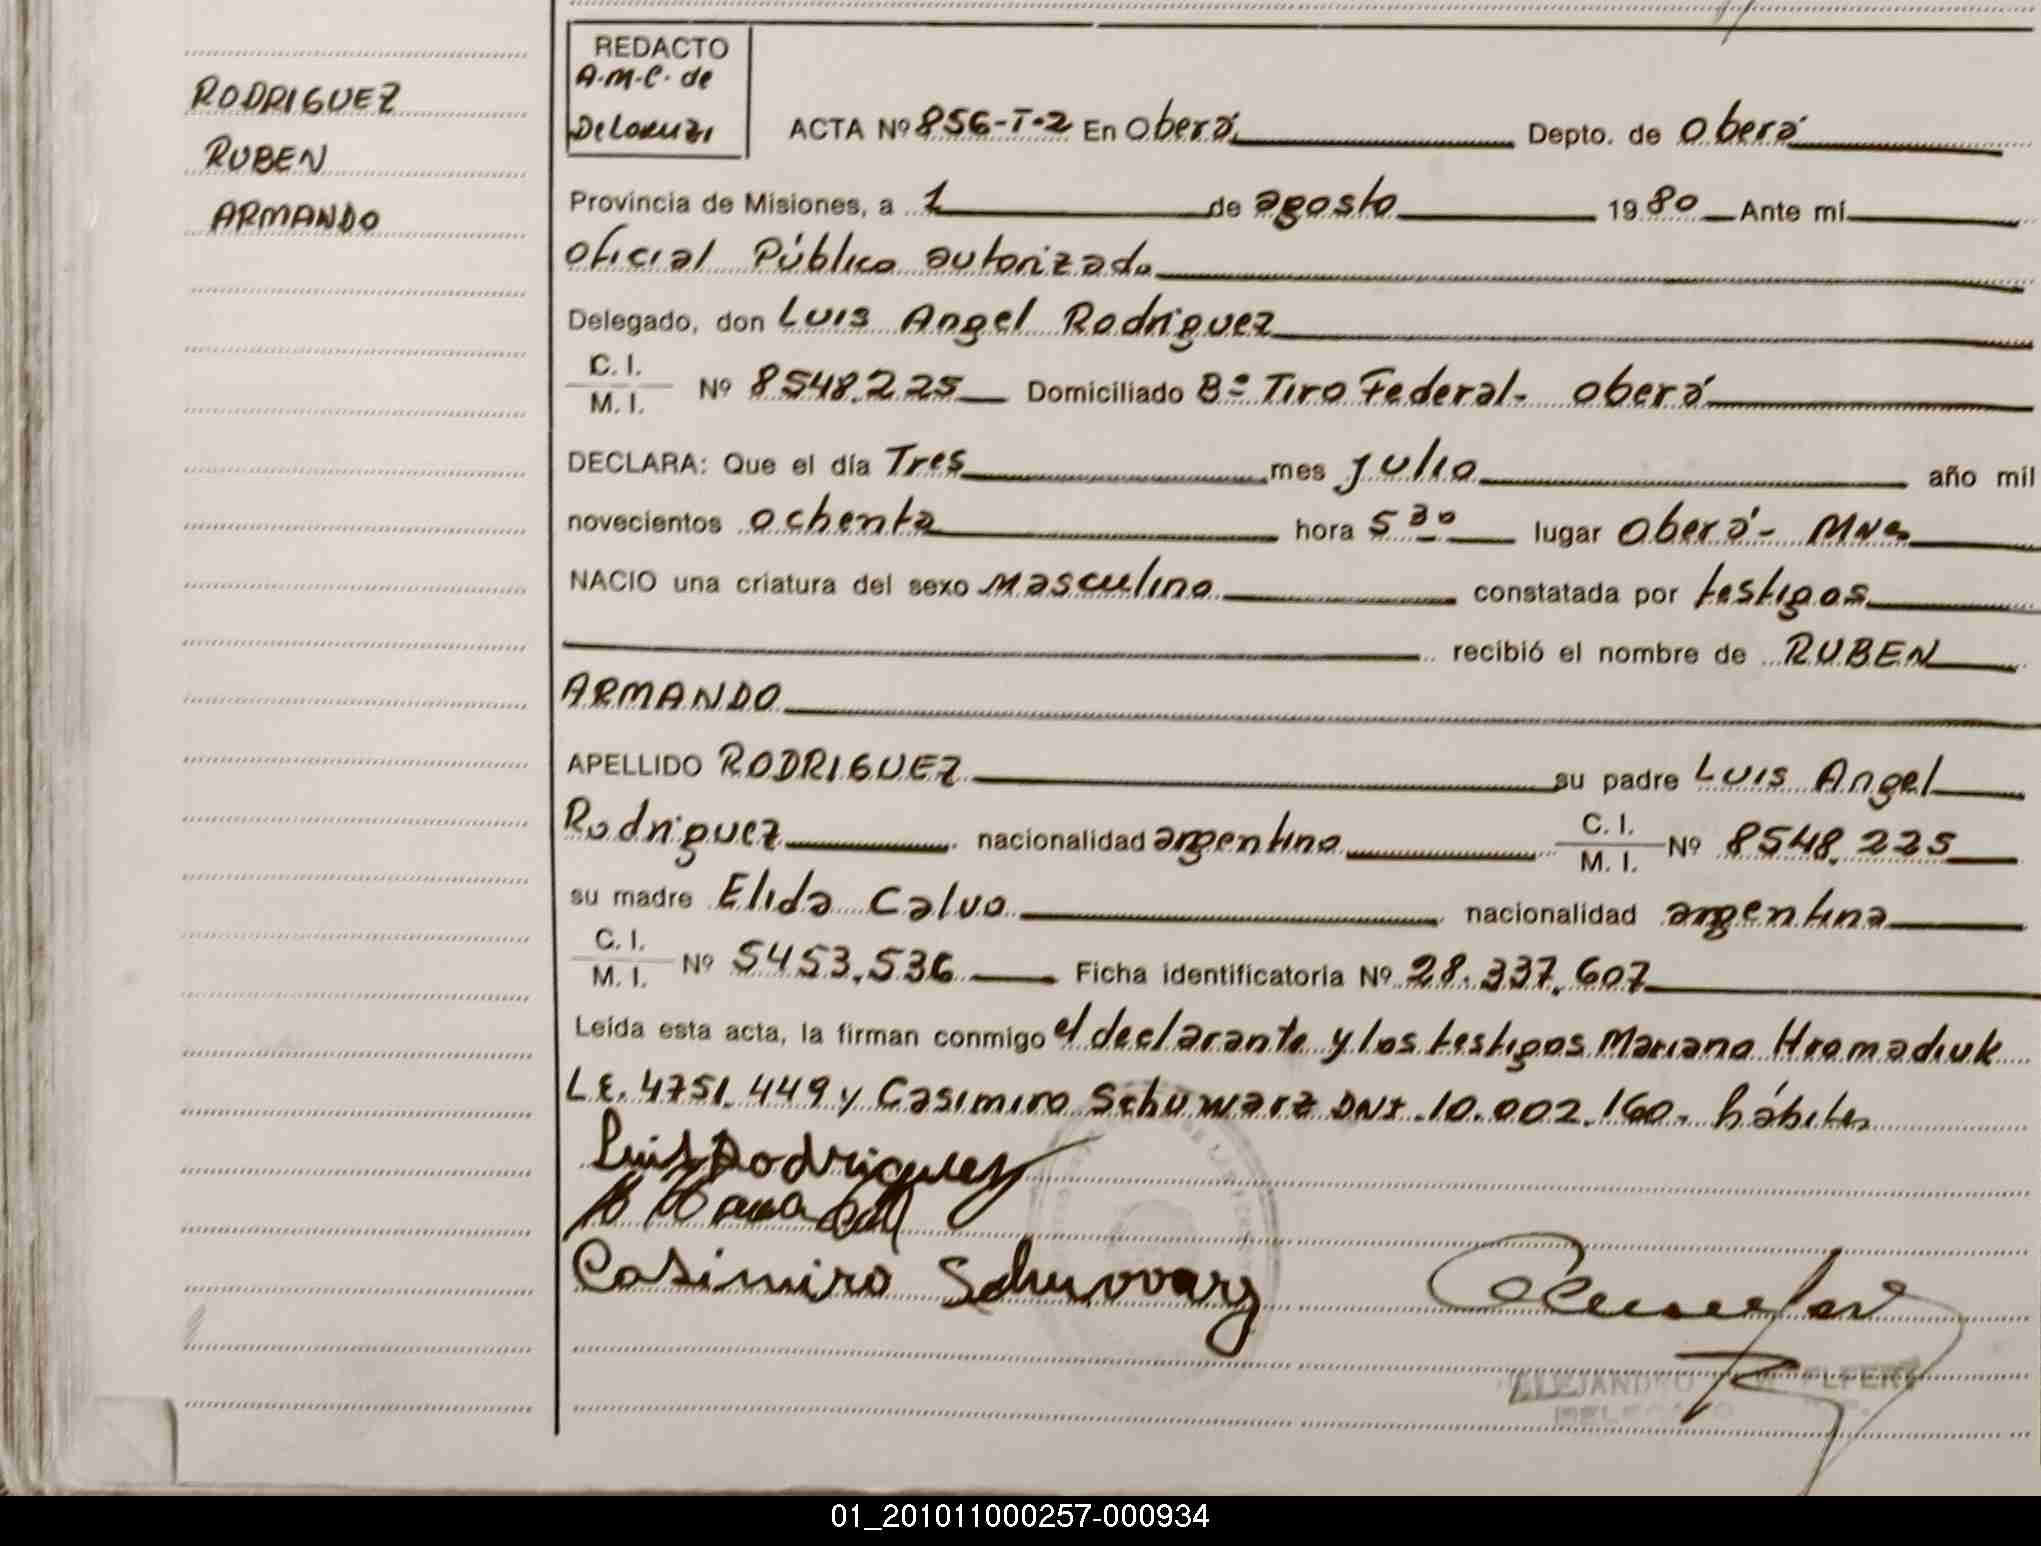 RODRIGUEZ
RUBEN
ARMANDO
REDACTO
A.M.C. de
ACTA Nº 856-T-2 En Oberá Depto. de Oberá
Provincia de Misiones, a 1 de agosto 1980 Ante mí
Oficial Público autorizado
Delegado, don Luis Angel Rodriguez
C. I.
M. I. Nº 8548.225 Domiciliado Bº Tiro Federal- Oberá
DECLARA: Que el día Tres mes julio año mil
novecientos ochenta hora 5 30 lugar Oberá- Mnes
NACIO una criatura del sexo masculino constatada por testigos
recibió el nombre de RUBEN
ARMANDO
APELLIDO RODRIGUEZ su padre Luis Angel
Rodriguez nacionalidad argentino C. I.
M. I. Nº 8548.225
su madre Elida Calvo nacionalidad argentina
C. I.
M. I. Nº 5453.536 Ficha identificatoria Nº 28.337.607
Leída esta acta, la firman conmigo el declarante y los testigos Mariano Hromadiuk
L.E. 4751.449 y Casimiro Schuwarz DNI. 10.002.160- hábiles
Luis A Rodriguez
Casimiro Schuwarz
ALEJANDRO
DELEGADO
01_201011000257-000934